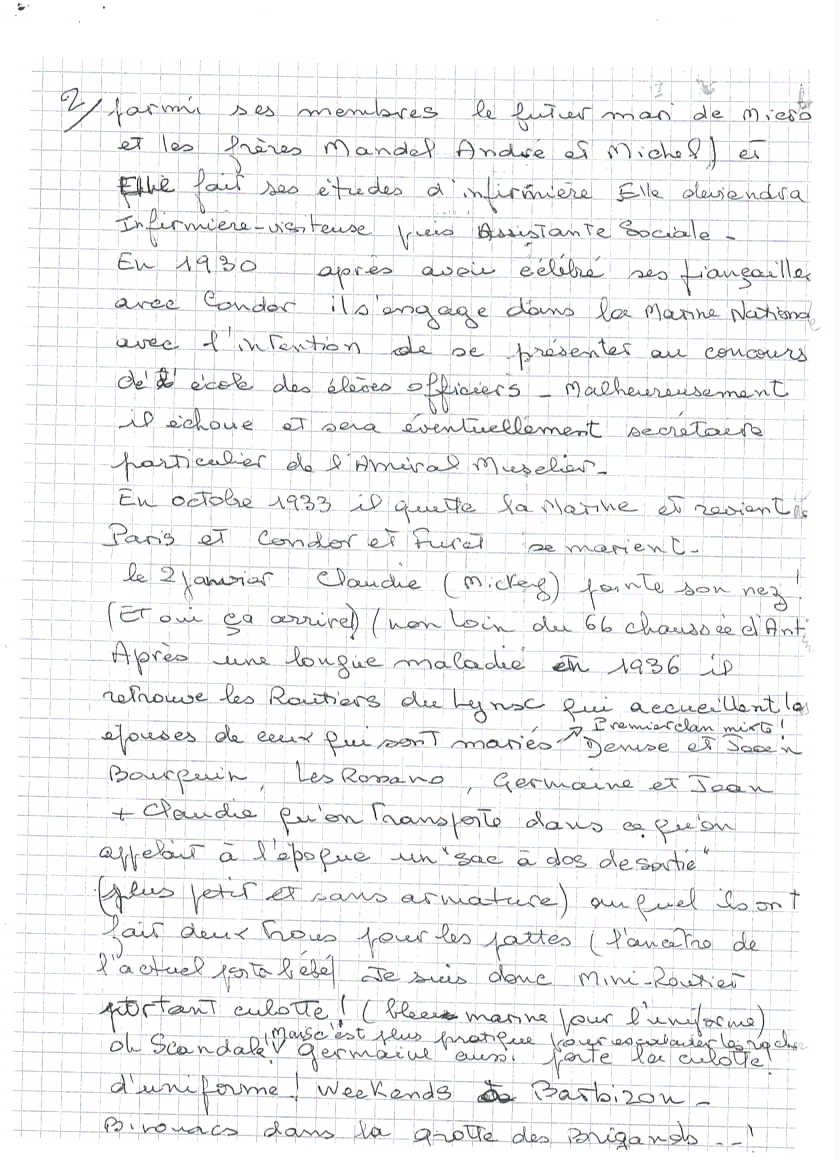 2/ parmi ses membres le futur mari de Micro
et les frères Mandel André et Michel) et
Elle fait ses études d'infirmière Elle deviendra
Infirmière-visiteuse puis Assistante Sociale -
En 1930 après avoir célébré ses fiançailles
avec Condor il s'engage dans la Marine Nationale
avec l'intention de se présenter au concours
de l'école des élèves officiers - Malheureusement
il échoue et sera éventuellement secrétaire
particulier de l'Amiral Muselier -
En octobre 1933 il quitte la Marine et revient à
Paris et Condor et Furet se marient -
le 2 janvier Claudie (Mickey) pointe son nez!
(Et oui ça arrive!) (non loin du 66 chaussée d'Ant.
Après une longue maladie en 1936 il
retrouve les Routiers du Lynx qui accueillent les
épouses de ceux qui sont mariés ↗ Premier clan mixte!
Denise et
Bourquin, Les Romano, Germaine et Jean
+ Claudie qu'on transporte dans ce qu'on
appelait à l'époque un "sac à dos de sortie"
(plus petit et sans armature) auquel ils ont
fait deux trous pour les pattes (l'ancêtre de
l'actuel porte bébé) Je suis donc Mini-Routier
portant culotte! (bleu marine pour l'uniforme)
Mais c'est plus pratique pour escalader les rochers
oh Scandale! Germaine aussi porte la culotte
d'uniforme! Weekends Barbizon -
Bivouacs dans la grotte des Brigands --!